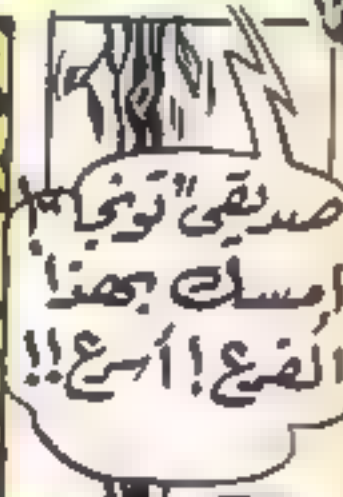 صديقي "تونجا"
إمسك بهذا
الفرع! أسرع!!